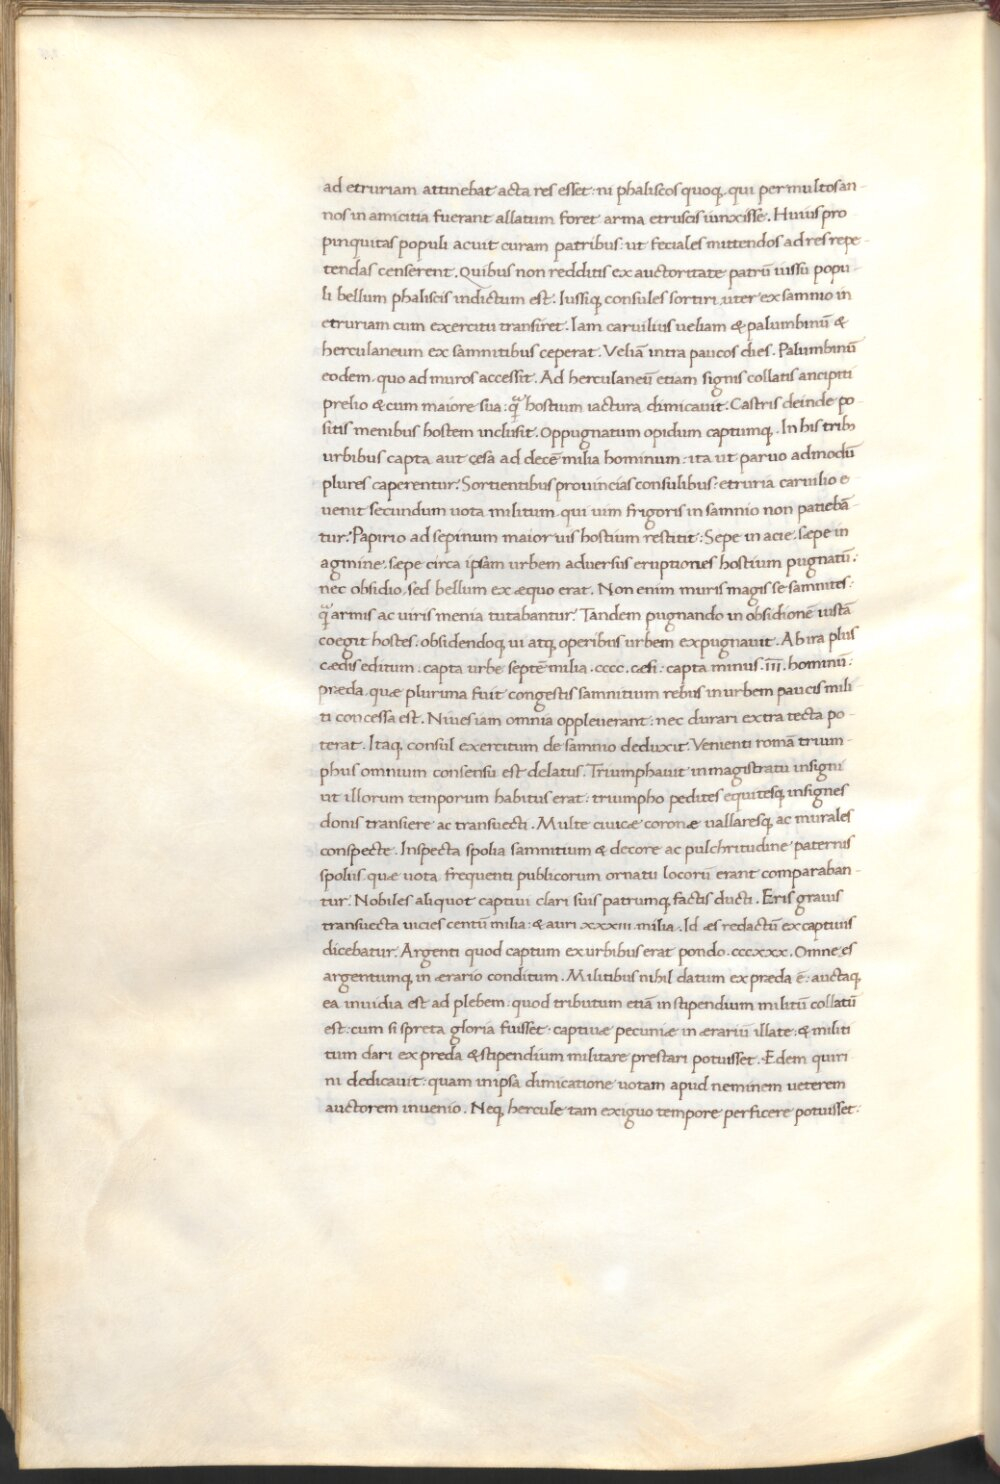 ad etruriam attinebat acta res esset: ni phaliscos quoq; qui per multos an-
nos in amicitia fuerant allatum foret arma etruscis iunxisse. Huius pro
pinquitas populi acuit curam patribus: ut feciales mittendos ad res repe-
tendas censerent. Quibus non redditis ex auctoritate patrū iussu popu-
li bellum phaliscis indictum est. Iussiq; consules sortiri uter ex samnio in
etruriam cum exercitu transiret. Iam caruilius ueliam & palumbinū &
herculaneum ex samnitibus ceperat. Veliā intra paucos dies. Palumbinū
eodem quo ad muros accessit. Ad herculaneū etiam signis collatis ancipiti
prelio & cum maiore sua: q̄ hostium iactura dimicauit. Castris deinde po-
sitis menibus hostem inclusit. Oppugnatum opidum captumq;. In his trib;
urbibus capta aut cęsa ad decē milia hominum: ita ut paruo admodū
plures caperentur. Sortientibus prouincias consulibus: etruria caruilio e-
uenit secundum uota militum qui uim frigoris in samnio non patiebā-
tur. Papirio ad sepinum maior uis hostium restitit: Sepe in acie: sæpe in
agmine: sæpe circa ipsam urbem aduersus eruptiones hostium pugnatū:
nec obsidio, sed bellum ex æquo erat. Non enim muris magis se samnites:
q̄ armis ac uiris menia tutabantur. Tandem pugnando in obsidionē iustā
coegit hostes: obsidendoq; ui atq; operibus urbem expugnauit. Ab ira plus
cædis editum. capta urbe septē milia .cccc. cæsi: capta minus .III. hominū:
præda, quæ plurima fuit congestis samnitium rebus in urbem paucis mili-
ti concessa est. Niues iam omnia oppleuerant: nec durari extra tecta po-
terat. Itaq; consul exercitum de samnio deduxit. Venienti romā trium-
phus omnium consensu est delatus. Triumphauit in magistratu insigni
ut illorum temporum habitus erat: triumpho pedites equitesq; insignes
donis transiere ac transuecti. Multe ciuicæ coronæ uallaresq; ac murales
conspecte. Inspecta spolia samnitium & decore ac pulchritudine paternis
spoliis quæ nota frequenti publicorum ornatu locorū erant comparaban-
tur. Nobiles aliquot captiui clari suis patrumq; factis ducti. Eris grauis
transuecta uicies centū milia: & auri xxxiii milia. Id æs redactū ex captiuis
dicebatur. Argenti quod captum ex urbibus erat pondo .cccxxx. Omne es
argentumq; in ærario conditum. Militibus nihil datum ex præda ē: auctaq;
ea inuidia est ad plebem: quod tributum etiā in stipendium militū collatū
est: cum si spreta gloria fuisset: captiuæ pecuniæ in ærariū illate: & militi
tum dari ex preda & stipendium militare prestari potuisset. Edem quiri-
ni dedicauit: quam in ipsa dimicatione uotam apud neminem ueterem
auctorem inuenio. Neq; hercule tam exiguo tempore perficere potuisset: